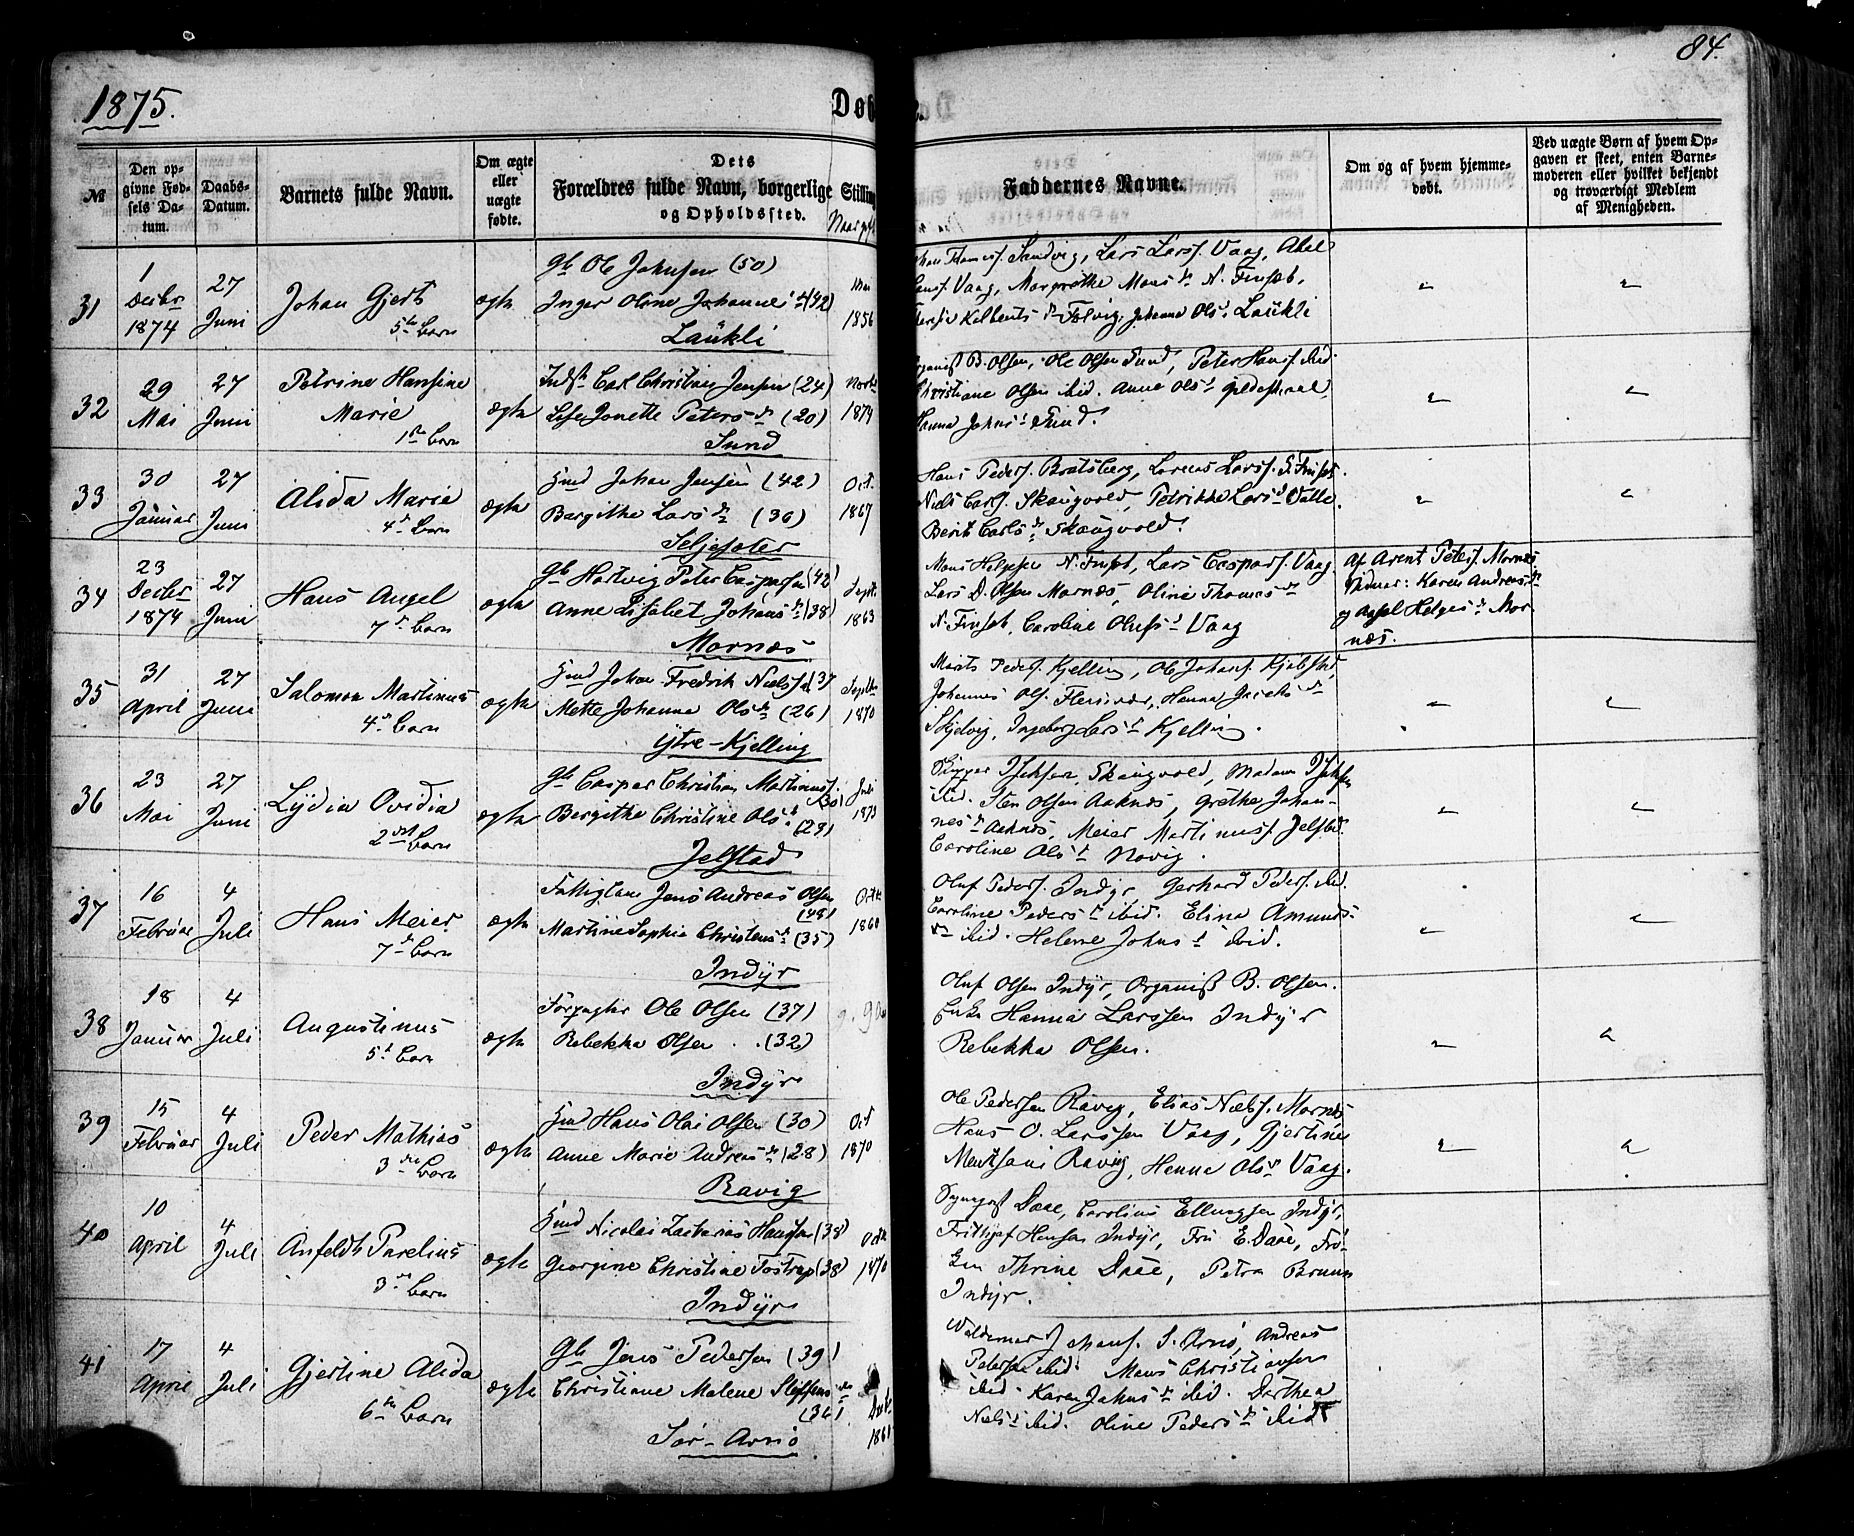 84.
1875.
Døb
№
Den opgivne Fødsels Datum.
Daabs-Datum.
Barnets fulde Navn.
Om ægte eller uægte fødte.
Dets Forældres fulde Navn, borgerlige Stilling og Opholdssted.
Faddernes Navne.
Om og af hvem hjemmedøbt.
Ved uægte Børn af hvem Opgaven er skeet, enten Barnemoderen eller hvilket bekjendt og troværdigt Medlem af Menigheden.
31
1 Decbr 1874
27 Juni
Johan Gjert
5te Barn
ægte
Gb Ole Johnsen (50)
Inger Oline Johannesd (42)
Laukli
1856
Sandvig, Lars Larss. Vaag, Abel
Vaag, Margrethe Monsdr N. Finset,
Johanna Olsd Laukli
32
29 Mai
27 Juni
Petrine Hansine
Marie
1ste Barn
ægte
Indst Carl Christian Jensen (24)
Lise Jonette Petersdr (20)
Sund
1874
B. Olsen, Ole Olsen Sund, Peter Hanss. ibid.
Christiane Olsen ibid. Anne Olsd
Hanna Johnsd Sund.
33
30 Januar
27 Juni
Alida Marie
4de Barn
ægte
Gmd Johan Jensen (42)
Bergithe Larsdr (36)
Seljesæter
Oct. 1867
Hans Peders. Bratsberg, Lorens Larss.
Niels Carls. Skaugvold, Petrikke Larsd Valle
Berit Carlsdr Skaugvold.
34
23 Decbr 1874
27 Juni
Hans Angel
7de Barn
ægte
Gb Hartvig Peter Caspersen (42)
Anne Lisabet Johansdr (38)
Mornæs
Septr 1863
N. Finset, Lars Caspars. Vaag
Lars D. Olsen Mornæs, Oline Thomasdr
N. Finset, Caroline Olufsd Vaag
Af Arent Peters. Mornæs
Vidner: Karen Andreasdr
og Helgesdr Mornæs.
35
31 April
27 Juni
Salomon Martinus
4de Barn
ægte
Gmd Johan Fredrik Nielssen (37
Mette Johanna Olsdr (26)
ytre-Kjelling
Septbr 1870
Peders. Kjelling, Ole Johans. Kjelstad,
Johannes Ols. Fleinvær, Hanna
Skjelvig, Ingeborg Larsd Kjelling.
36
23 Mai
27 Juni
Lydia Ovidia
2det Barn
ægte
Gb Casper Christian Martinuss. (30)
Bergithe Christine Olsd (29)
Jelstad
Juli 1873
Skipper Skaugvold, Madam
ibid. Sten Olsen Aaknæs, Grethe Johannesdr
Aaknæs, Meier Martinuss. Jelstad.
Caroline Olsd Novig.
37
16 Februar
4 Juli
Hans Meier
7de Barn
ægte
Fattiglem Jens Andreas Olsen (48)
Martine Sophie Christensd (35)
Indyr
Octbr 1860
Oluf Peders. Indyr Gerhard Peders. ibid.
Caroline Pedersd ibid. Elina Amunds-
dr ibid. Helene Johnsd ibid.
38
18 Januar
4 Juli
Augustinus
5te Barn
ægte
Forpagter Ole Olsen (37)
Rebekka Olsen (32)
Indyr
Oluf Olsen Indyr, Organist B. Olsen.
Enke Hanna Larssen Indyr
Rebekka Olsen.
39
15 Februar
4 Juli
Peder Mathias
3die Barn
ægte
Gmd Hans Olai Olsen (30)
Anne Marie Andreasdr (28)
Ravig
Oct 1870
Ole Pedersen Ravig, Elias Niels. Mornæs
Hans O. Larssen Vaag, Gjertine
Ravig, Hanna Olsdr Vaag.
40
10 April
4 Juli
Anfeldt Parelius
3die Barn
ægte
Gmd Nicolai Zacharias Hanssen (38)
Georgine Christine Tostrup (38)
Indyr
Octbr 1870
Sogneprst Daae, Carolius Ellingsen Indyr,
Frithjof Hansen Indyr, Fru E. Daae, Frøken
Thrine Daae, Petra Bruun
Indyr.
41
17 April
4 Juli
Gjertine Alida
6te Barn
ægte
Gb Jens Pedersen (39)
Christiane Malene Steffensdr (36)
Sør-Arnø
1861
Waldemar S. Arnø, Andreas
Petersen ibid. Mons Christiansen
ibid. Karen Johnsdr ibid. Dorthea
Nielsd ibid. Oline Pedersdr ibid